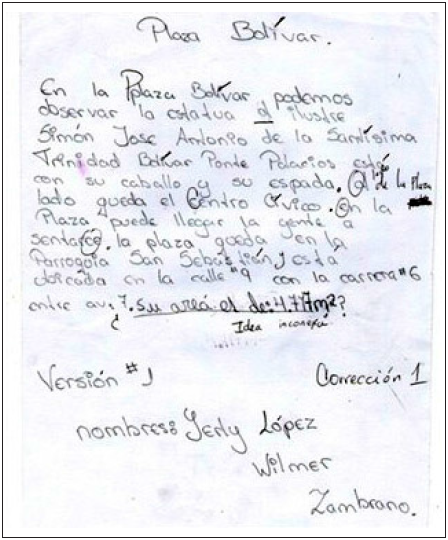 Plaza Bolívar.
En la Plaza Bolívar podemos
observar la estatua el ilustre
Simón Jose Antonio de la Santísima
Trinidad Bolívar Ponte Palacios esta
con su caballo y su espada. al de la Plaza
lado queda el Centro Cívico. en la
Plaza puede llegar la gente a
sentarce. la plaza queda en la
Parroquia San Sebastián, esta
ubicada en la calle #9 con la carrera #6
entre av: 7. su areá el de: 4.717m²?
Idea
Versión #1 Corrección 1
nombres: Yerly López
Wilmer
Zambrano.